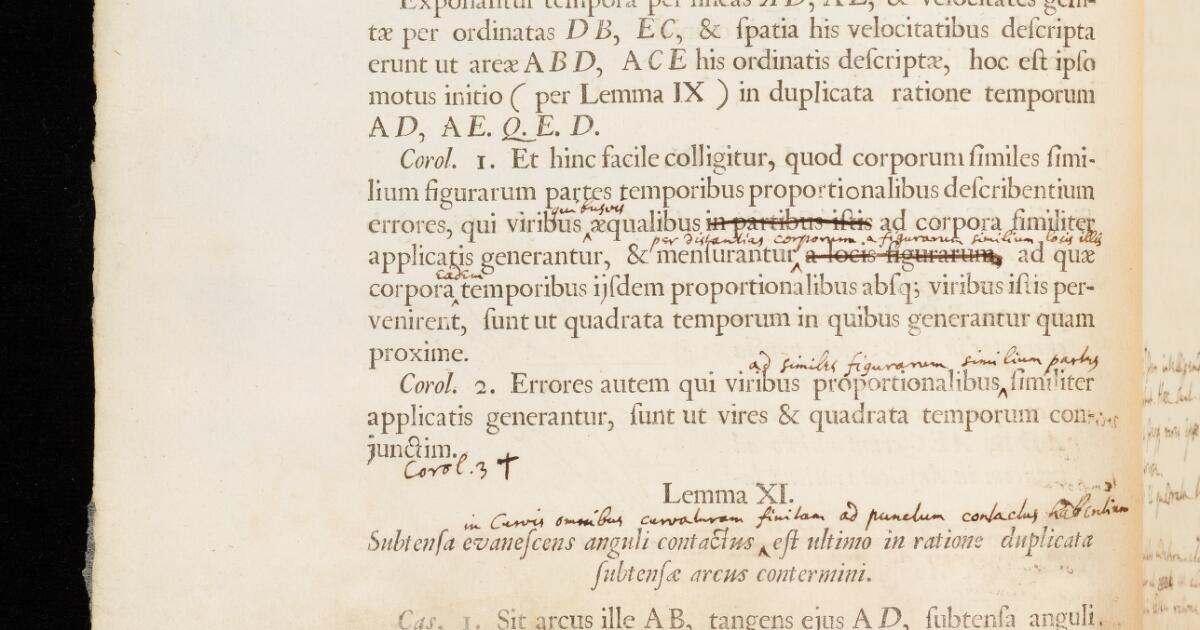 Exponantur tempora per lineas AD, AE, & velocitates geni-
tæ per ordinatas DB, EC, & ſpatia his velocitatibus deſcripta
erunt ut areæ ABD, ACE his ordinatis deſcriptæ, hoc eſt ipſo
motus initio ( per Lemma IX ) in duplicata ratione temporum
AD, AE. Q. E. D.
Corol. 1. Et hinc facile colligitur, quod corporum ſimiles ſimi-
lium figurarum partes temporibus proportionalibus deſcribentium
quibusvis
errores, qui viribus æqualibus in partibus iſtis ad corpora ſimiliter
per distantias corporum a figurarum similium locis illis
applicatis generantur, & menſurantur a locis figurarum, ad quæ
eadem
corpora temporibus ijſdem proportionalibus abſq; viribus iſtis per-
venirent, ſunt ut quadrata temporum in quibus generantur quam
proxime.
ad similes figurarum similium partes
Corol. 2. Errores autem qui viribus proportionalibus ſimiliter
applicatis generantur, ſunt ut vires & quadrata temporum con-
junctim.
Corol. 3 †
Lemma XI.
in Curvis omnibus curvaturam finitam ad punctum contactus habentium
Subtenſa evaneſcens anguli contactus eſt ultimo in ratione duplicata
ſubtenſæ arcus contermini.
Cas. 1. Sit arcus ille AB, tangens ejus AD, ſubtenſa anguli